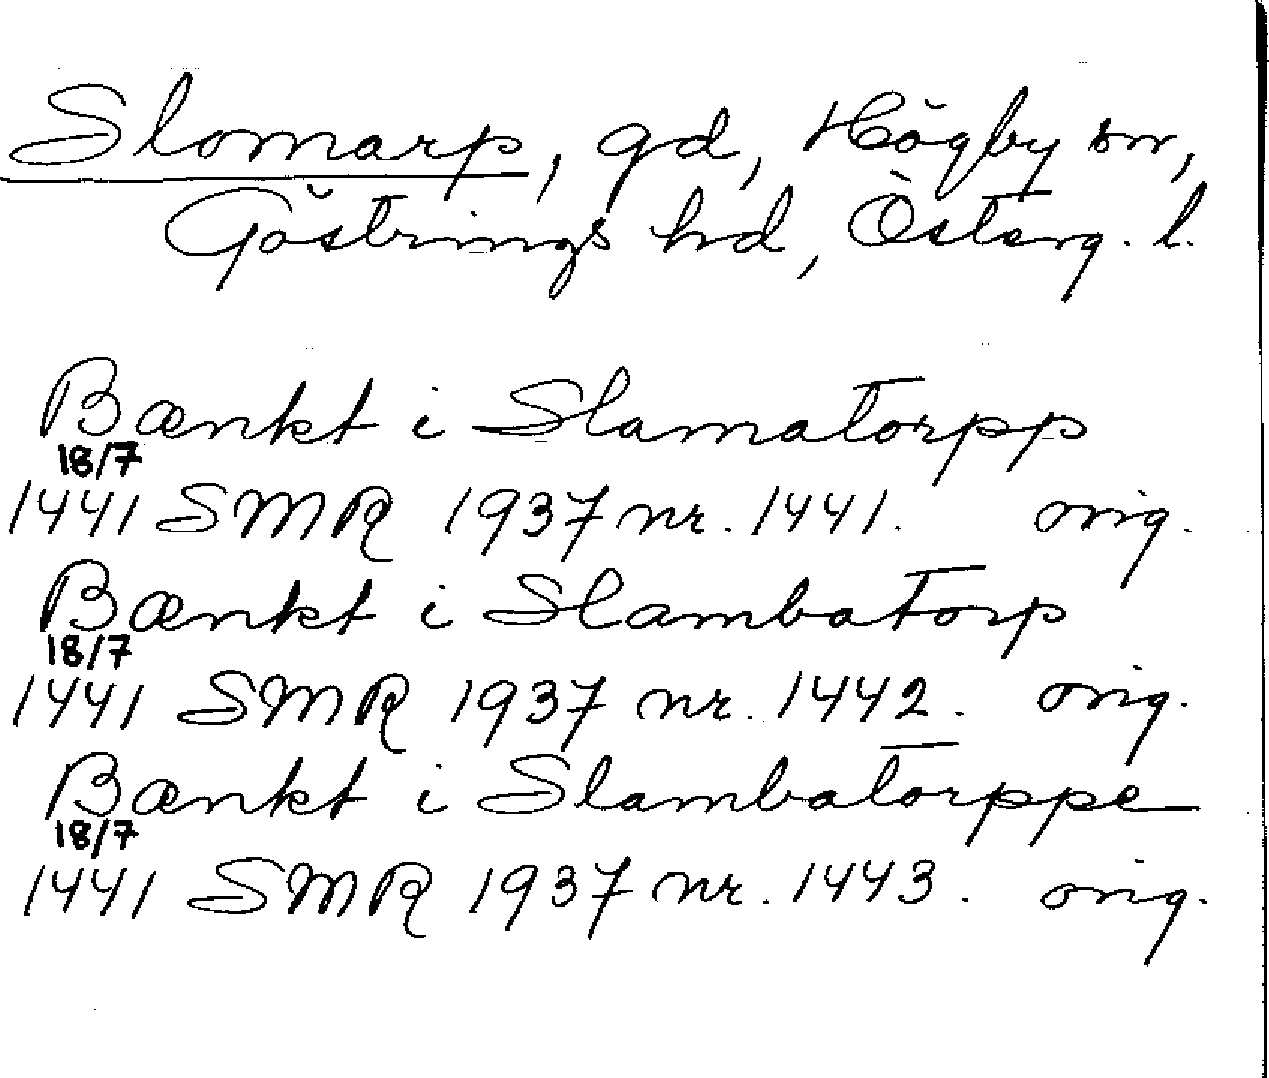 Slomarp, gd, Högby sn,
Göstrings hd, Österg. l.
Bænkt i Slamatorpp
18/7
1441 SMR 1937 nr. 1441. orig.
Bænkt i Slambatorp
18/7
1441 SMR 1937 nr. 1442. orig.
Bænkt i Slambatorppe
18/7
1441 SMR 1937 nr. 1443. orig.